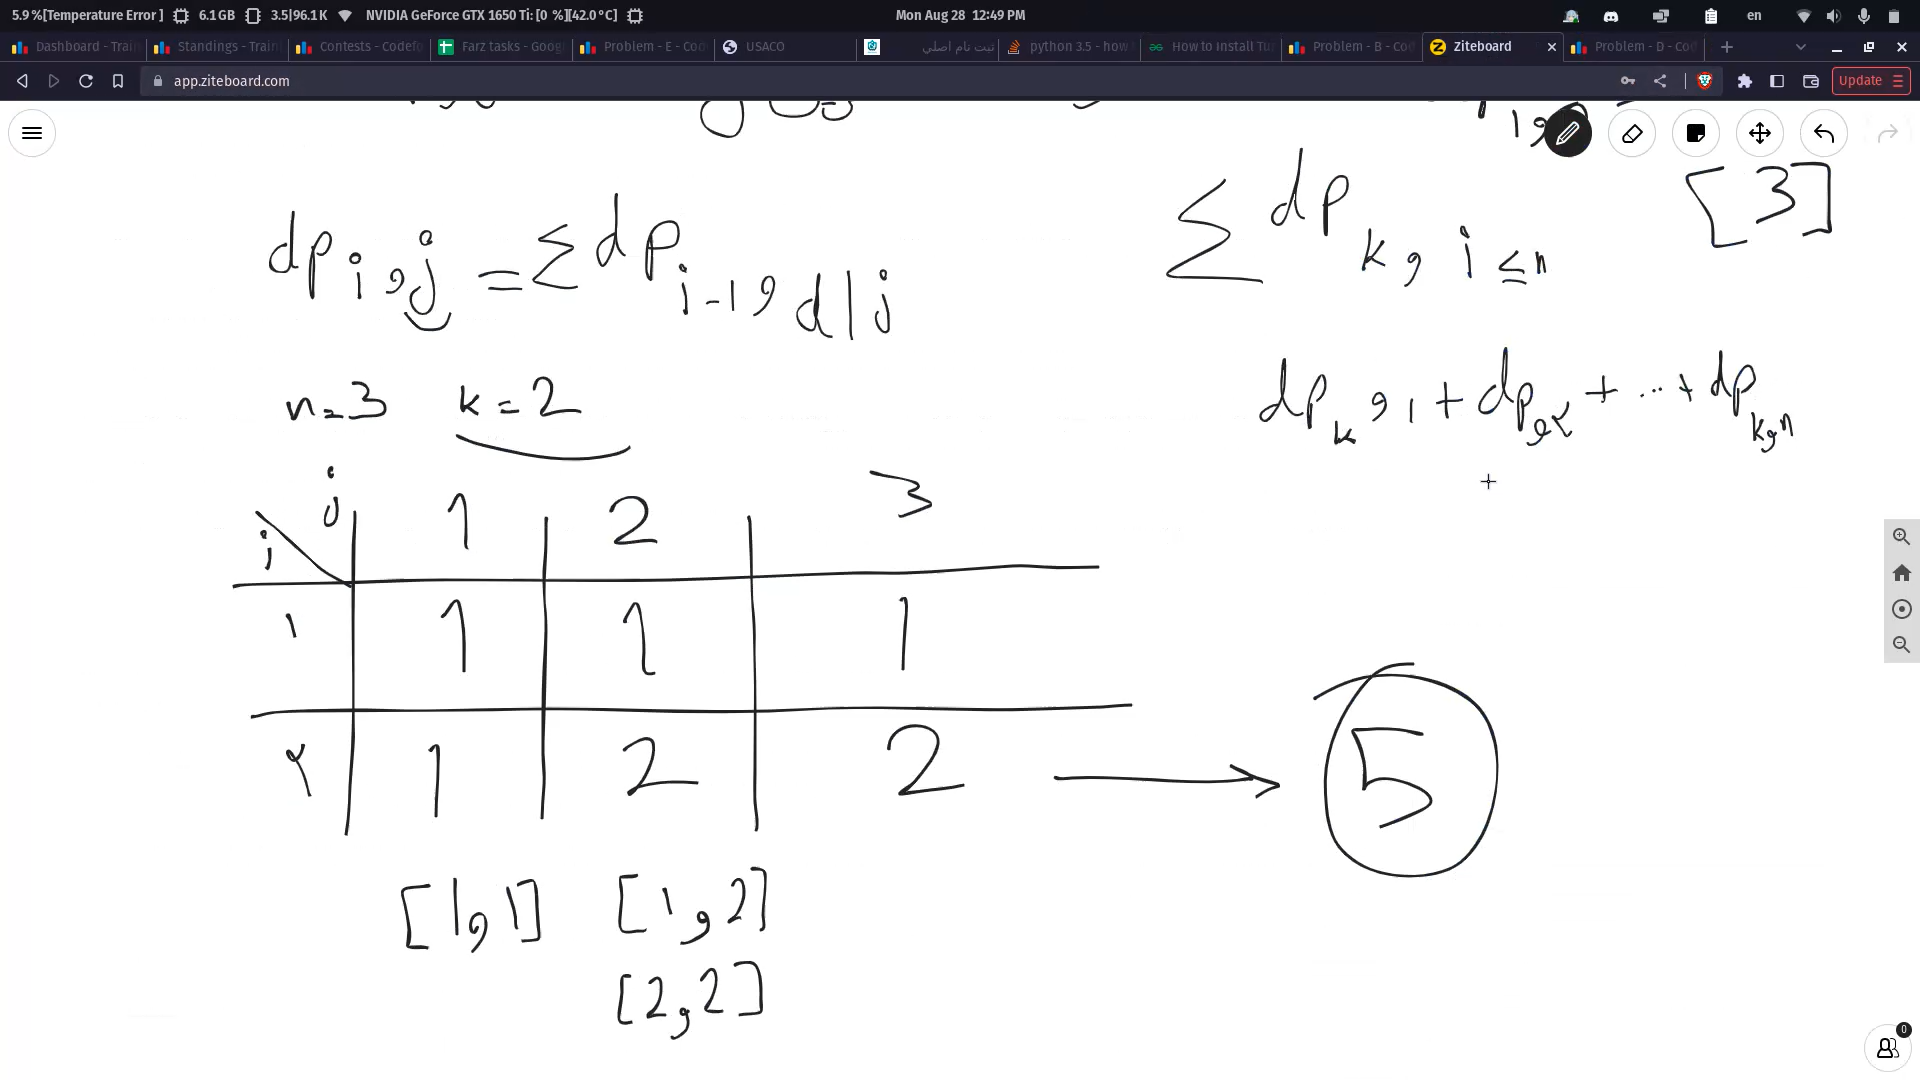 5.9 %[Temperature Error ] 6.1 GB 3.5|96.1K NVIDIA GeForce GTX 1650 Ti: [0 %][42.0°C] Mon Aug 28 12:49 PM en
Dashboard - Train Standings - Traini Contests - Codefo Farz tasks - Goog Problem - E - Cod USACO ثبت نام اصلي python 3.5 - how How to Install Tu Problem - B - Cod Ziteboard Problem - D - Cod
app.ziteboard.com Update
dp i,j = Σ dp i-1, d|j
Σ dp k, i ≤ n
[3]
n=3 k=2
dp k,1 + dp ,۲ + ... + dp k,n
i j 1 2 3
۱ 1 1 1
۲ 1 2 2
5
[1,1] [1,2]
[2,2]
0